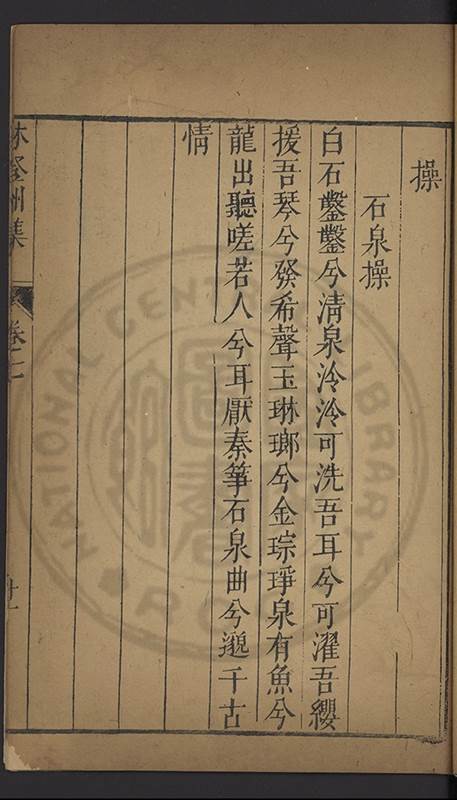 操
石泉操
白石鑿鑿兮清泉泠泠可洗吾耳兮可濯吾纓
援吾琴兮發希聲玉琳瑯兮金琮琤泉有魚兮
龍出聽嗟若人兮耳厭秦箏石泉曲兮邈千古
情
林登州集
卷二
十一